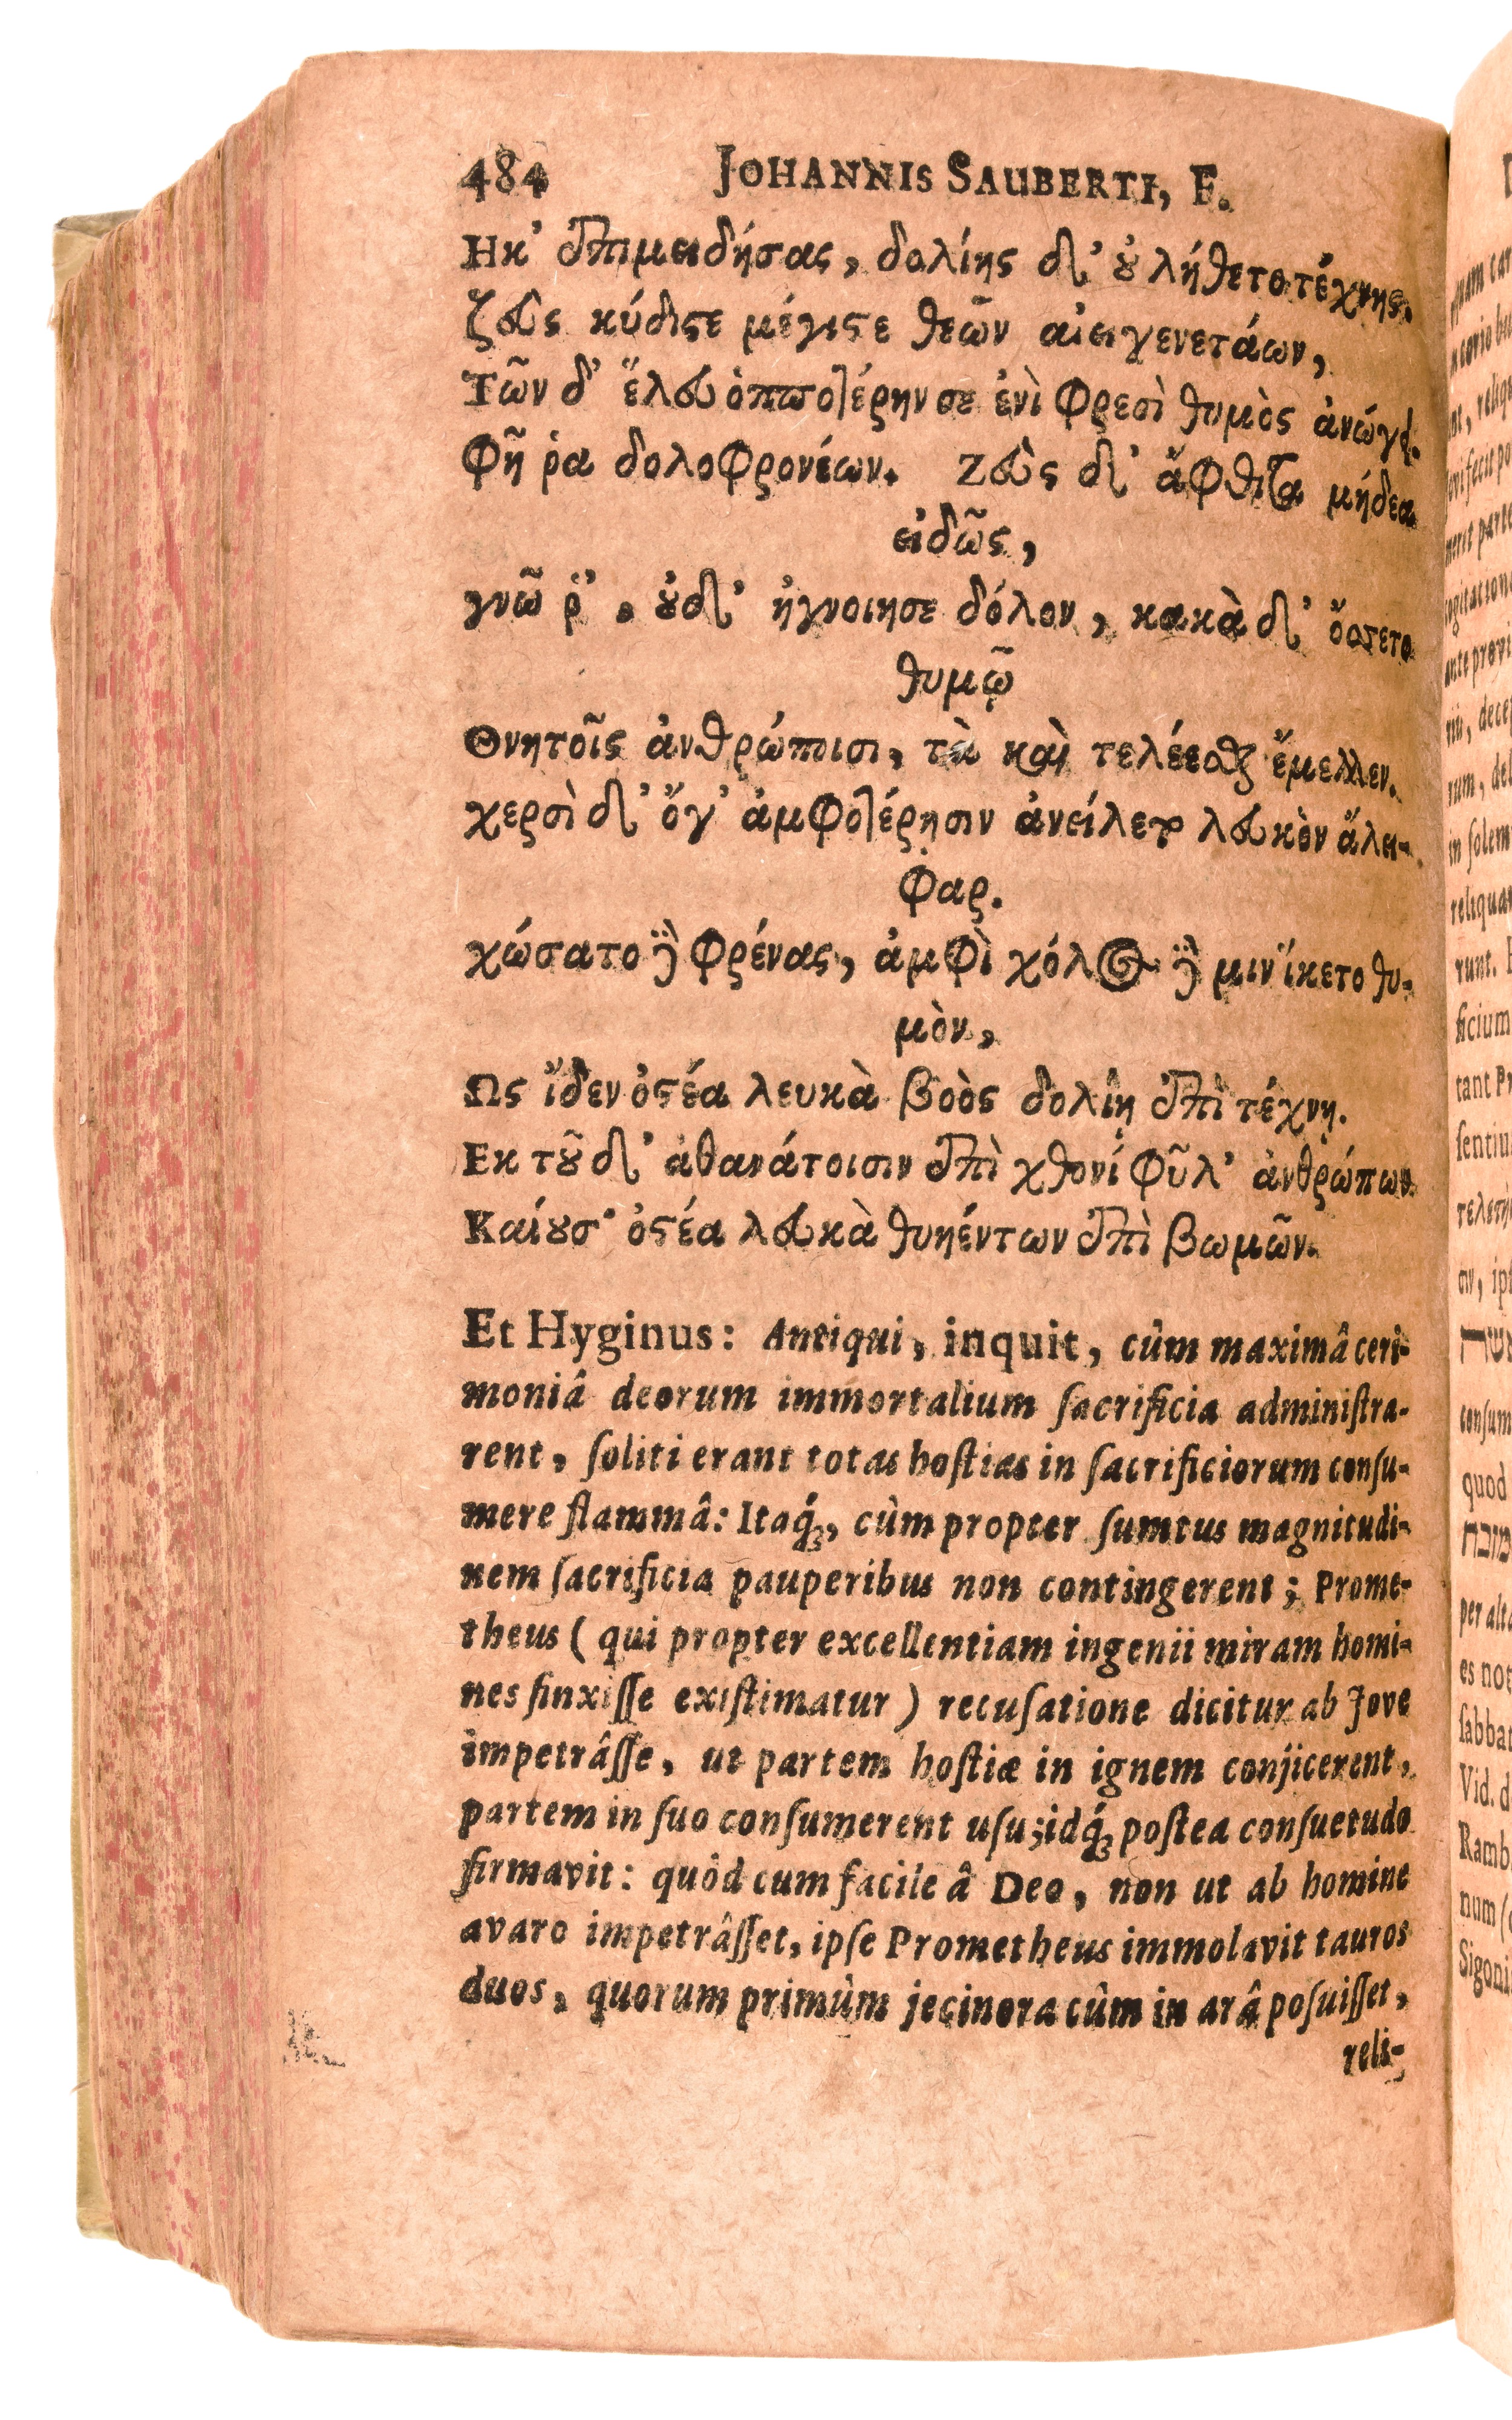 484 JOHANNIS SAUBERTI, F.
Ηκ' ἐπιμειδήσας, δολίης δ' οὐ λήθετο τέχνης.
ζεῦς κύδιστε μέγιστε θεῶν αἰειγενετάων,
Τῶν δ' ἕλευ ὁπποτέρην σε ἐνὶ φρεσὶ θυμὸς ἀνώγει.
Φῆ ῥα δολοφρονέων. Ζεὺς δ' ἄφθιτα μήδεα
εἰδῶς,
γνῶ ῥ', οὐδ' ἠγνοιησε δόλον, κακὰ δ' ὄσσετο
θυμῷ
Θνητοῖς ἀνθρώποισι, τὰ καὶ τελέεσθαι ἔμελλεν.
χερσὶ δ' ὅγ' ἀμφοτέρησιν ἀνείλετο λευκὸν ἄλει-
φαρ.
χώσατο δὲ φρένας, ἀμφὶ χόλος δὲ μιν ἵκετο θυ-
μὸν,
Ως ἴδεν ὀστέα λευκὰ βοὸς δολίῃ ἐπὶ τέχνῃ.
Εκ τοῦ δ' ἀθανάτοισιν ἐπὶ χθονὶ φῦλ' ἀνθρώπων
Καίουσ' ὀστέα λευκὰ θυηέντων ἐπὶ βωμῶν.
Et Hyginus: Antiqui, inquit, cùm maximâ ceri-
moniâ deorum immortalium ſacrificia adminiſtra-
rent, ſoliti erant totas hoſtias in ſacrificiorum conſu-
mere flammâ: Itaq́ꝫ, cùm propter ſumtus magnitudi-
nem ſacrificia pauperibus non contingerent; Prome-
theus (qui propter excellentiam ingenii miram homi-
nes finxiſſe exiſtimatur) recuſatione dicitur ab Jove
impetrâſſe, ut partem hoſtiæ in ignem conjicerent,
partem in ſuo conſumerent uſu; idq́ꝫ poſtea conſuetudo
firmavit: quòd cum facile â Deo, non ut ab homine
avaro impetrâſſet, ipſe Prometheus immolavit tauros
duos, quorum primùm jecinora cùm in arâ poſuiſſet,
reli-